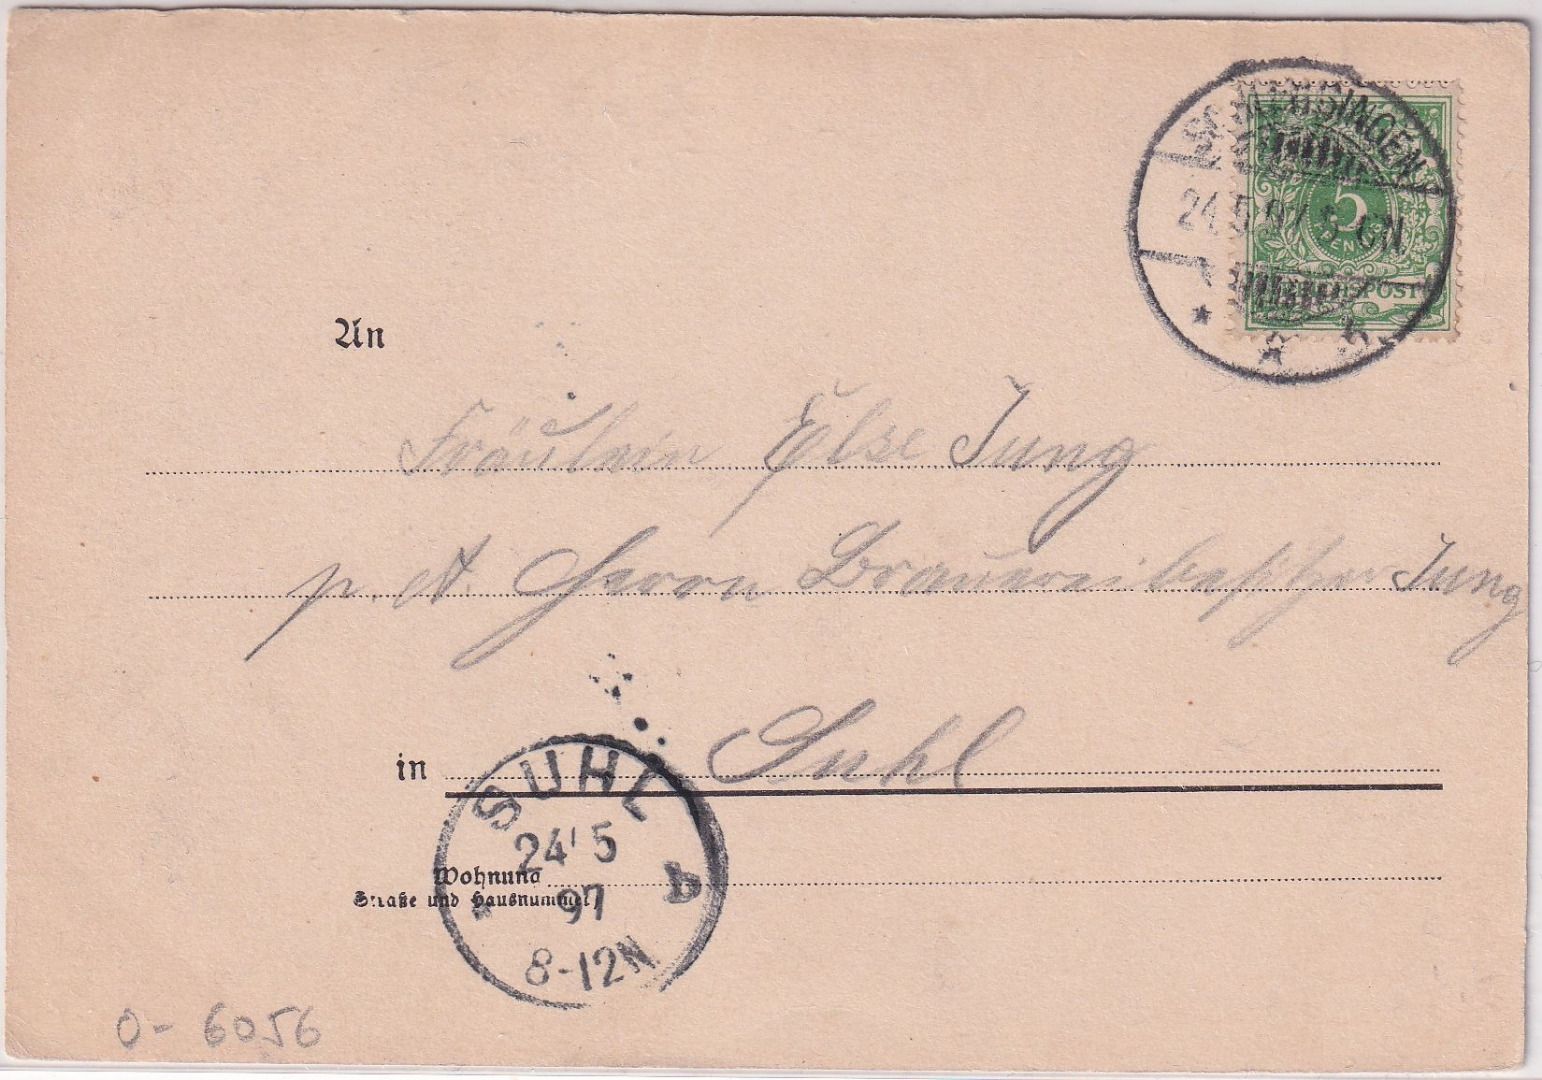 SCHLEUSINGEN
24.5.97. 5-6N.
* * b
5
PFENNIG
REICHSPOST
An
Fräulein Else Jung
p. A. Herrn Brauereibesitzer Jung
in Suhl
SUHL
24 5
97
8-12N
* b
Wohnung
Straße und Hausnummer)
0- 6056